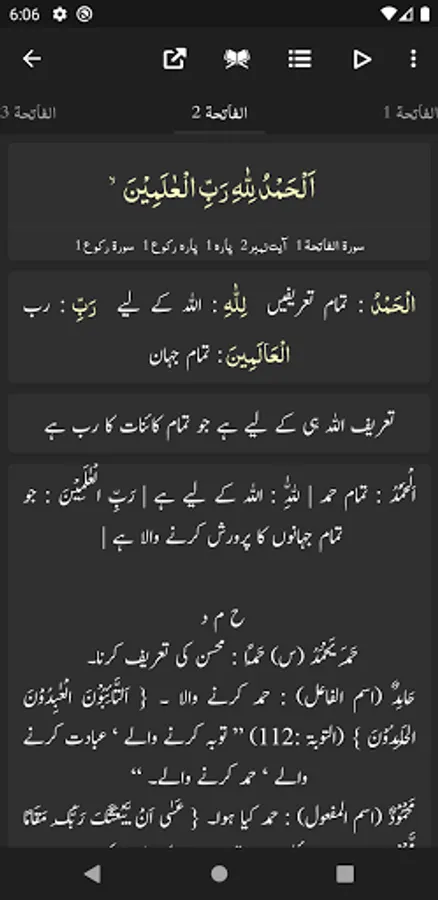 6:06
الفاتحة 1
الفاتحة 2
الفاتحة 3
اَلْحَمْدُ لِلّٰهِ رَبِّ الْعٰلَمِيْنَ ۙ
سورة الفاتحة 1 آیت نمبر 2 پارہ 1 پارہ رکوع 1 سورۃ رکوع 1
الْحَمْدُ : تمام تعریفیں لِلّٰهِ : اللہ کے لیے رَبِّ : رب
الْعَالَمِينَ : تمام جہان
تعریف اللہ ہی کے لیے ہے جو تمام کائنات کا رب ہے
اَلْحَمْدُ : تمام حمد | لِلّٰهِ : اللہ کے لیے ہے | رَبِّ الْعٰلَمِيْنَ : جو
تمام جہانوں کا پرورش کرنے والا ہے |
ح م د
حَمِدَ يَحْمَدُ (س) حَمْدًا : محسن کی تعریف کرنا۔
حَامِدٌ (اسم الفاعل) : حمد کرنے والا ۔ { اَلتَّآئِبُوْنَ الْعٰبِدُوْنَ
الْحٰمِدُوْنَ } (التوبۃ :112) ” توبہ کرنے والے ‘ عبادت کرنے
والے ‘ حمد کرنے والے۔ “
مَحْمُوْدٌ (اسم المفعول) : حمد کیا ہوا۔ { عَسٰٓى اَنْ يَّبْعَثَكَ رَبُّكَ مَقَامًا